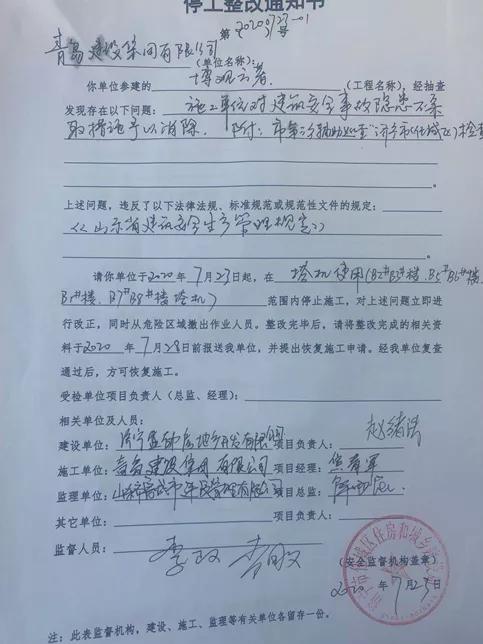 停工整改通知书
第20200723-01号
青岛建设集团有限公司(单位名称):
你单位参建的 博观云著 (工程名称),经抽查
发现存在以下问题: 施工单位对建筑安全事故隐患不采
取措施予以消除. 附:市第 次 检查
上述问题,违反了以下法律法规、标准规范或规范性文件的规定:
《山东省建筑安全生产管理规定》
请你单位于2020年7月23日起,在 塔机使用(B2#B3#楼、B5#B6#楼、
楼、B7#B8#楼塔机) 范围内停止施工,对上述问题立即进
行改正,同时从危险区域撤出作业人员。整改完毕后,请将整改完成的相关资
料于2020年7月28日前报送我单位,并提出恢复施工申请。经我单位复查
通过后,方可恢复施工。
受检单位项目负责人(总监、经理):
相关单位及人员:
建设单位:济宁 房地产开发有限公司 项目负责人:
施工单位:青岛建设集团有限公司 项目经理:
监理单位: 有限公司 项目总监:
其它单位: 项目负责人:
监督人员:
(安全监督机构盖章)
2020年7月23日
注:此表监督机构,建设、施工、监理等有关单位各留存一份。